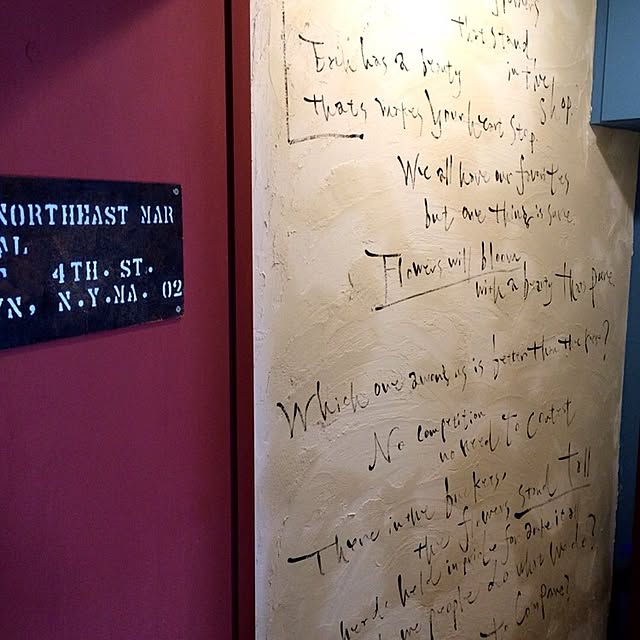 NORTHEAST MAR
AL
4TH. ST.
VN, N.Y.MA. 02
flowers
that stand
in the
shop
Each has a beauty
thats makes your heart stop
We all have our favorites
but one thing is sure
Flowers will bloom
with a beauty thats pure
Which one among us is better than the first?
No competition
no need to contest
There in the buckets
the flowers stand tall
heads held in pride for quite it all
we people do what we do?
to compare?